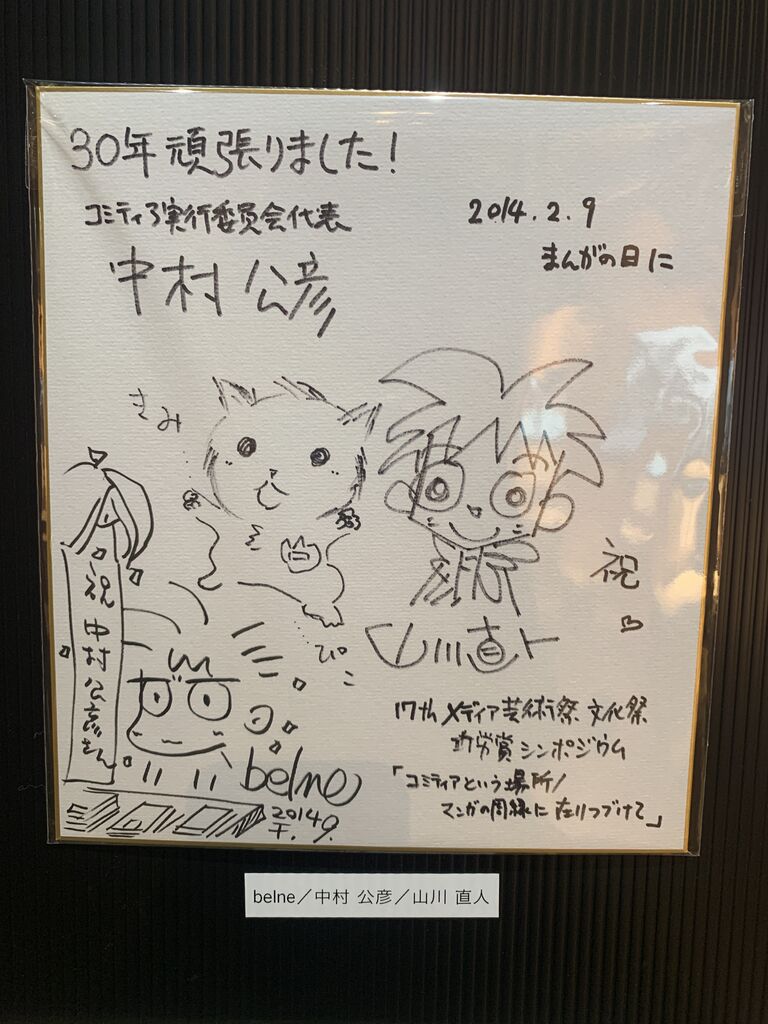 30年頑張りました!
コミティア実行委員会代表
中村 公彦
2014.2.9
まんがの日に
きみ
ぴこ
祝
山川直人
祝 中村公彦さん
belne
2014
17th メディア芸術祭 文化祭
功労賞シンポジウム
「コミティアという場所/
マンガの周縁に 在りつづけて」
belne/中村 公彦/山川 直人